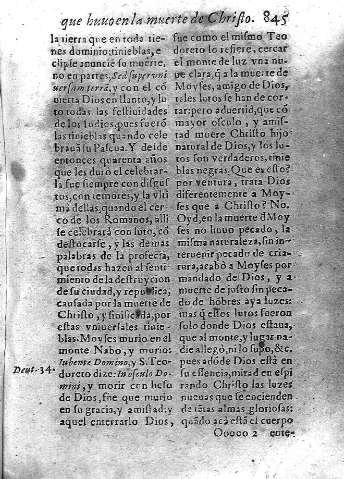 que huuo en la muerte de Christo. 845
la tierra que en toda tie-
nes dominio; tinieblas, e
clipse anunciè su muerte,
no en partes, Sed super vni
uersam terrã, y con el cõ
uierta Dios en llanto, y lu
to todas las festiuidades
de los Iudios, pues fuerõ
las tinieblas quando cele
brauã su Pascua. Y desde
entonces quarenta años
que les duró el celebrar-
la fue siempre con disgus
tos, con temores, y la vlti
ma dellas, quando el cer-
co de los Romanos, alli
se celebrarà con luto, cõ
destocarse, y las demas
palabras de la profecia,
que todas hazen al senti-
miento de la destruycion
de su ciudad, y republica,
causada por la muerte de
Christo, y sinificada, por
estas vniuersales tinie-
blas. Moyses murio en el
monte Nabo, y murio:
Iubente Domino, y S. Teo-
doreto dize: In osculo Do-
mini, y morir con beso
de Dios, fue que murio
en su gracia, y amistad: y
aquel enterrarlo Dios,
Deut. 34.
fue como el mismo Teo
doreto lo refiere, cercar
el monte de luz vna nu
ue clara, q̃ a la muerte de
Moyses, amigo de Dios,
tales lutos se han de cor-
tar: pero aduertid, que cõ
mayor osculo, y amis-
tad muere Christo hijo
natural de Dios, y los lu-
tos son verdaderos, tinie
blas negras. Que es esto?
por ventura, trata Dios
diferentemente a Moy-
ses que a Christo? No.
Oyd, en la muerte d̃ Moy
ses no huuo pecado, la
misma naturaleza, sin in-
teruenir pecado de cria-
tura, acabò a Moyses por
mandado de Dios, y a
muerte de justo sin peca-
do de hõbres aya luzes:
mas q̃ estos lutos fueron
solo donde Dios estaua,
que al monte, y lugar na-
die allegò, ni lo supo, &c.
pues adõde Dios està en
su essencia, mirad en espi
rando Christo las luzes
nueuas que se encienden
de tãtas almas gloriosas:
quando acà està el cuerpo
Ooooo 2 ente-